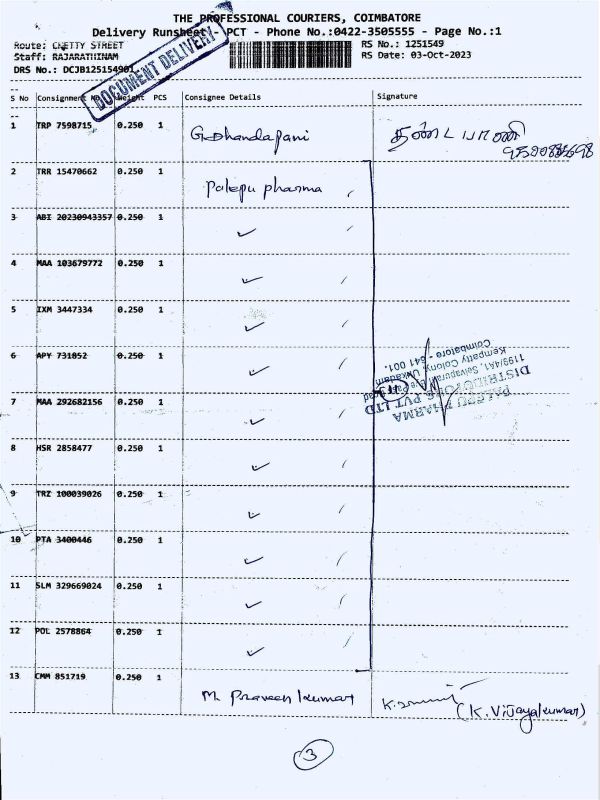 THE PROFESSIONAL COURIERS, COIMBATORE
Delivery Runsheet - PCT - Phone No.:0422-3505555 - Page No.:1
Route: CHETTY STREET
RS No.: 1251549
Staff: RAJARATHINAM
RS Date: 03-Oct-2023
DRS No.: DCJB125154901
DOCUMENT DELIVERY
S No Consignment Weight PCS Consignee Details Signature
1 TRP 7598715 0.250 1 G. Dhandapani தண்டபாணி
2 TRR 15470662 0.250 1 Palepu pharma
3 ABI 20230943357 0.250 1 ✓
4 MAA 103679772 0.250 1 ✓
5 IXM 3447334 0.250 1 ✓
6 APY 731852 0.250 1 ✓
7 MAA 292682156 0.250 1 ✓
8 HSR 2858477 0.250 1 ✓
9 TRZ 100039026 0.250 1 ✓
10 PTA 3400446 0.250 1 ✓
11 SLM 329669024 0.250 1 ✓
12 POL 2578864 0.250 1 ✓
PALEPU PHARMA
DISTRIBUTORS PVT LTD
1199/4A1, Selvapuram Bye Pass Road
Kempatty Colony, Ukkadam
Coimbatore - 641 001.
13 CMM 851719 0.250 1 M. Praveen kumar (K. Vijayakumar)
3